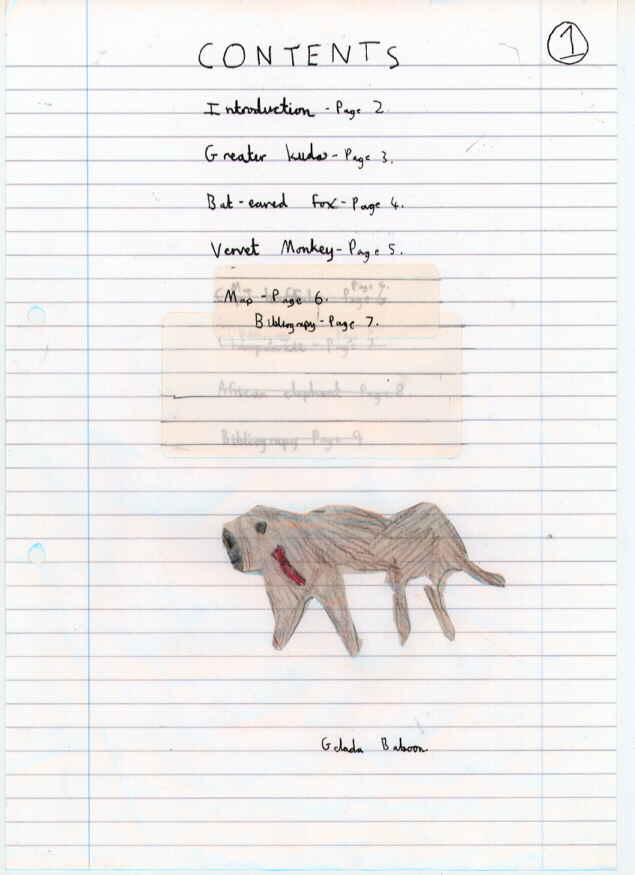 1
CONTENTS
Introduction - Page 2
Greater kudo - Page 3.
Bat-eared Fox - Page 4.
Vervet Monkey - Page 5.
Map - Page 6.
Bibliograpy - Page 7.
African elephant Page 8.
Bibliograpy Page 9
Gelada Baboon